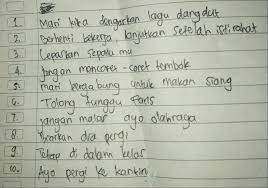 1. Mari kita dengarkan lagu dangdut
2. Berhenti bekerja, lanjutkan setelah istirahat
3. Lepaskan sepatu mu
4. Jangan mencoret-coret tembok
5. mari bergabung untuk makan siang
6. Tolong tunggu Faris
7. jangan malas ayo olahraga
8. Biarkan dia pergi
9. Tetap di dalam kelas
10. Ayo pergi ke kantin